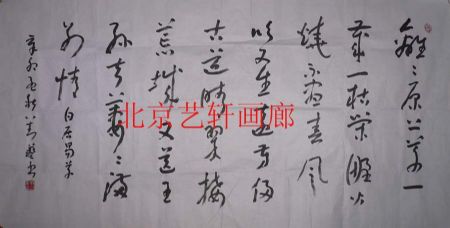 離々原上草一
歲一枯榮野火
燒不盡春風
吹又生遠芳侵
古道晴翠接
荒城又送王
孫去萋々滿
別情 白居易草
北京艺轩画廊